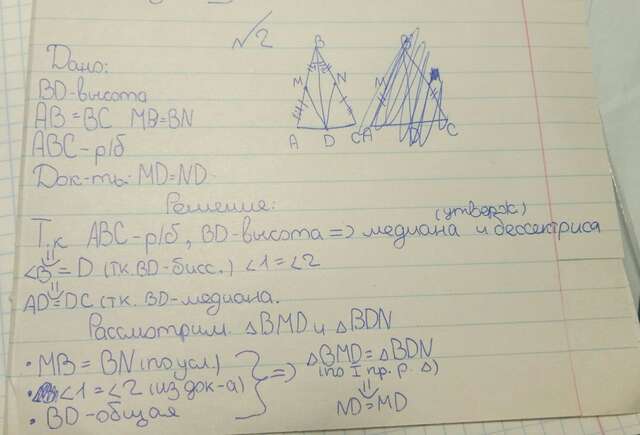 √2
Дано:
BD-высота
AB = BC MB = BN
ABC - р/б
Док-ть: MD = ND
B
M N
A D C
B
M
A D C
Решение:
(утверж)
Т.к ABC - р/б, BD - высота => медиана и бессектриса
∠B = D (т.к. BD - бисс.) ∠1 = ∠2
AD = DC (т.к. BD - медиана.
Рассмотрим △BMD и △BDN
• MB = BN (по усл.)
• ∠1 = ∠2 (из док-а)
• BD - общая
=> △BMD = △BDN
(по I пр. р. △)
ND = MD